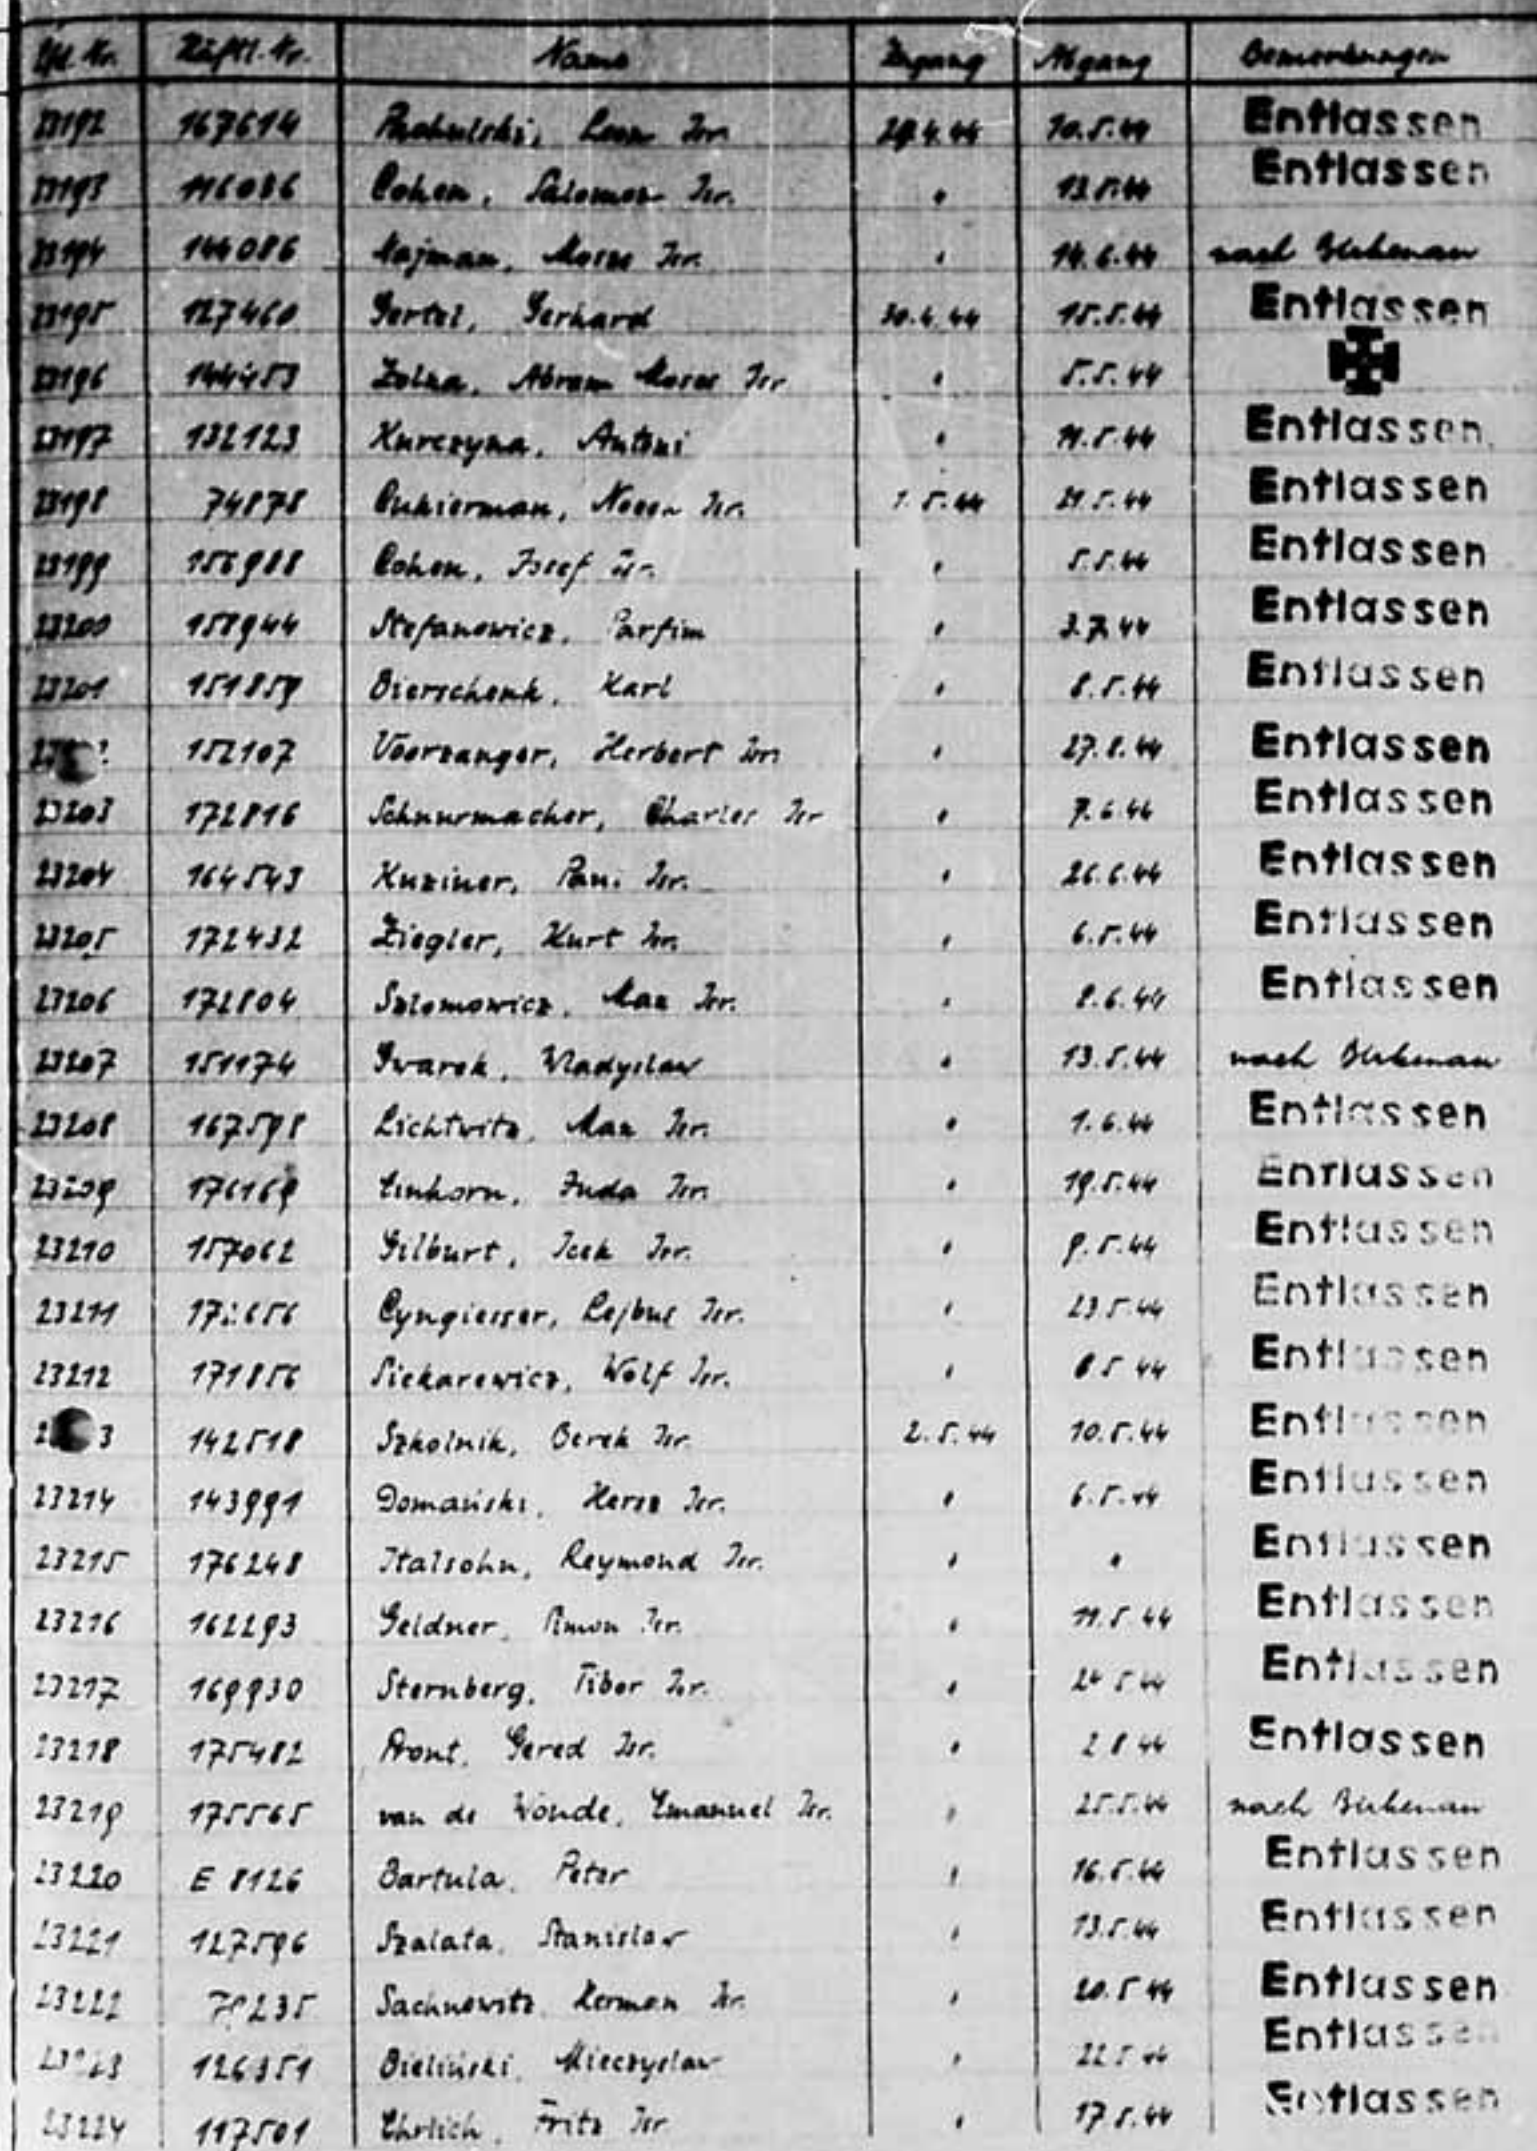 Lfd. Nr. Häftl. Nr. Name Zugang Abgang Bemerkungen
23192 167614 Leon Isr. 29.4.44 10.5.44 Entlassen
23193 116086 Cohen, Salomon Isr. " 13.5.44 Entlassen
23194 144086 Najman, Moses Isr. " 14.6.44 nach Birkenau
23195 127460 Gertel, Gerhard 30.4.44 15.5.44 Entlassen
23196 144453 Abram Moses Isr " 5.5.44
23197 132123 Kurczyna, Antoni " 11.5.44 Entlassen
23198 74878 Cukierman, Isr. 1.5.44 21.5.44 Entlassen
23199 Cohen, Josef Isr. " 5.5.44 Entlassen
23200 158944 Stefanowicz, Parfim " 3.7.44 Entlassen
23201 151859 Bierschenk, Karl " 8.5.44 Entlassen
152107 Voorzanger, Herbert Isr. " 27.8.44 Entlassen
23203 172816 Schnurmacher, Charles Isr " 7.6.44 Entlassen
23204 164543 Kuziner, Isr. " 26.6.44 Entlassen
23205 172432 Ziegler, Kurt Isr. " 6.5.44 Entlassen
23206 172804 Szlomowicz, Max Isr. " 8.6.44 Entlassen
23207 151174 Gwarek, Wladyslaw " 13.5.44 nach Birkenau
23208 167598 Lichtwitz, Max Isr. " 1.6.44 Entlassen
23209 176169 Einhorn, Juda Isr. " 19.5.44 Entlassen
23210 157062 Gilburt, Icek Isr. " 9.5.44 Entlassen
23211 Cyngiesser, Lejbus Isr. " 23.5.44 Entlassen
23212 171856 Siekarewicz, Wolf Isr. " 8.5.44 Entlassen
142518 Szkolnik, Berek Isr. 2.5.44 10.5.44 Entlassen
23214 143991 Domański, Hersz Isr. " 6.5.44 Entlassen
23215 176248 Italsohn, Reymond Isr. " " Entlassen
23216 162293 Geldner, Isr. " 11.5.44 Entlassen
23217 169930 Sternberg, Tibor Isr. " 24.5.44 Entlassen
23218 175482 Pront, Gered Isr. " 2.8.44 Entlassen
23219 175565 van de Wonde, Emanuel Isr. " 25.5.44 nach Birkenau
23220 E 8126 Bartula, Peter " 16.5.44 Entlassen
23221 127596 Szalata, Stanislaw " 13.5.44 Entlassen
23222 Sachnowitz, Herman Isr. " 20.5.44 Entlassen
23223 126351 Bieliński, Mieczyslaw " 22.5.44 Entlassen
23224 117501 Ehrlich, Fritz Isr " 17.5.44 Entlassen